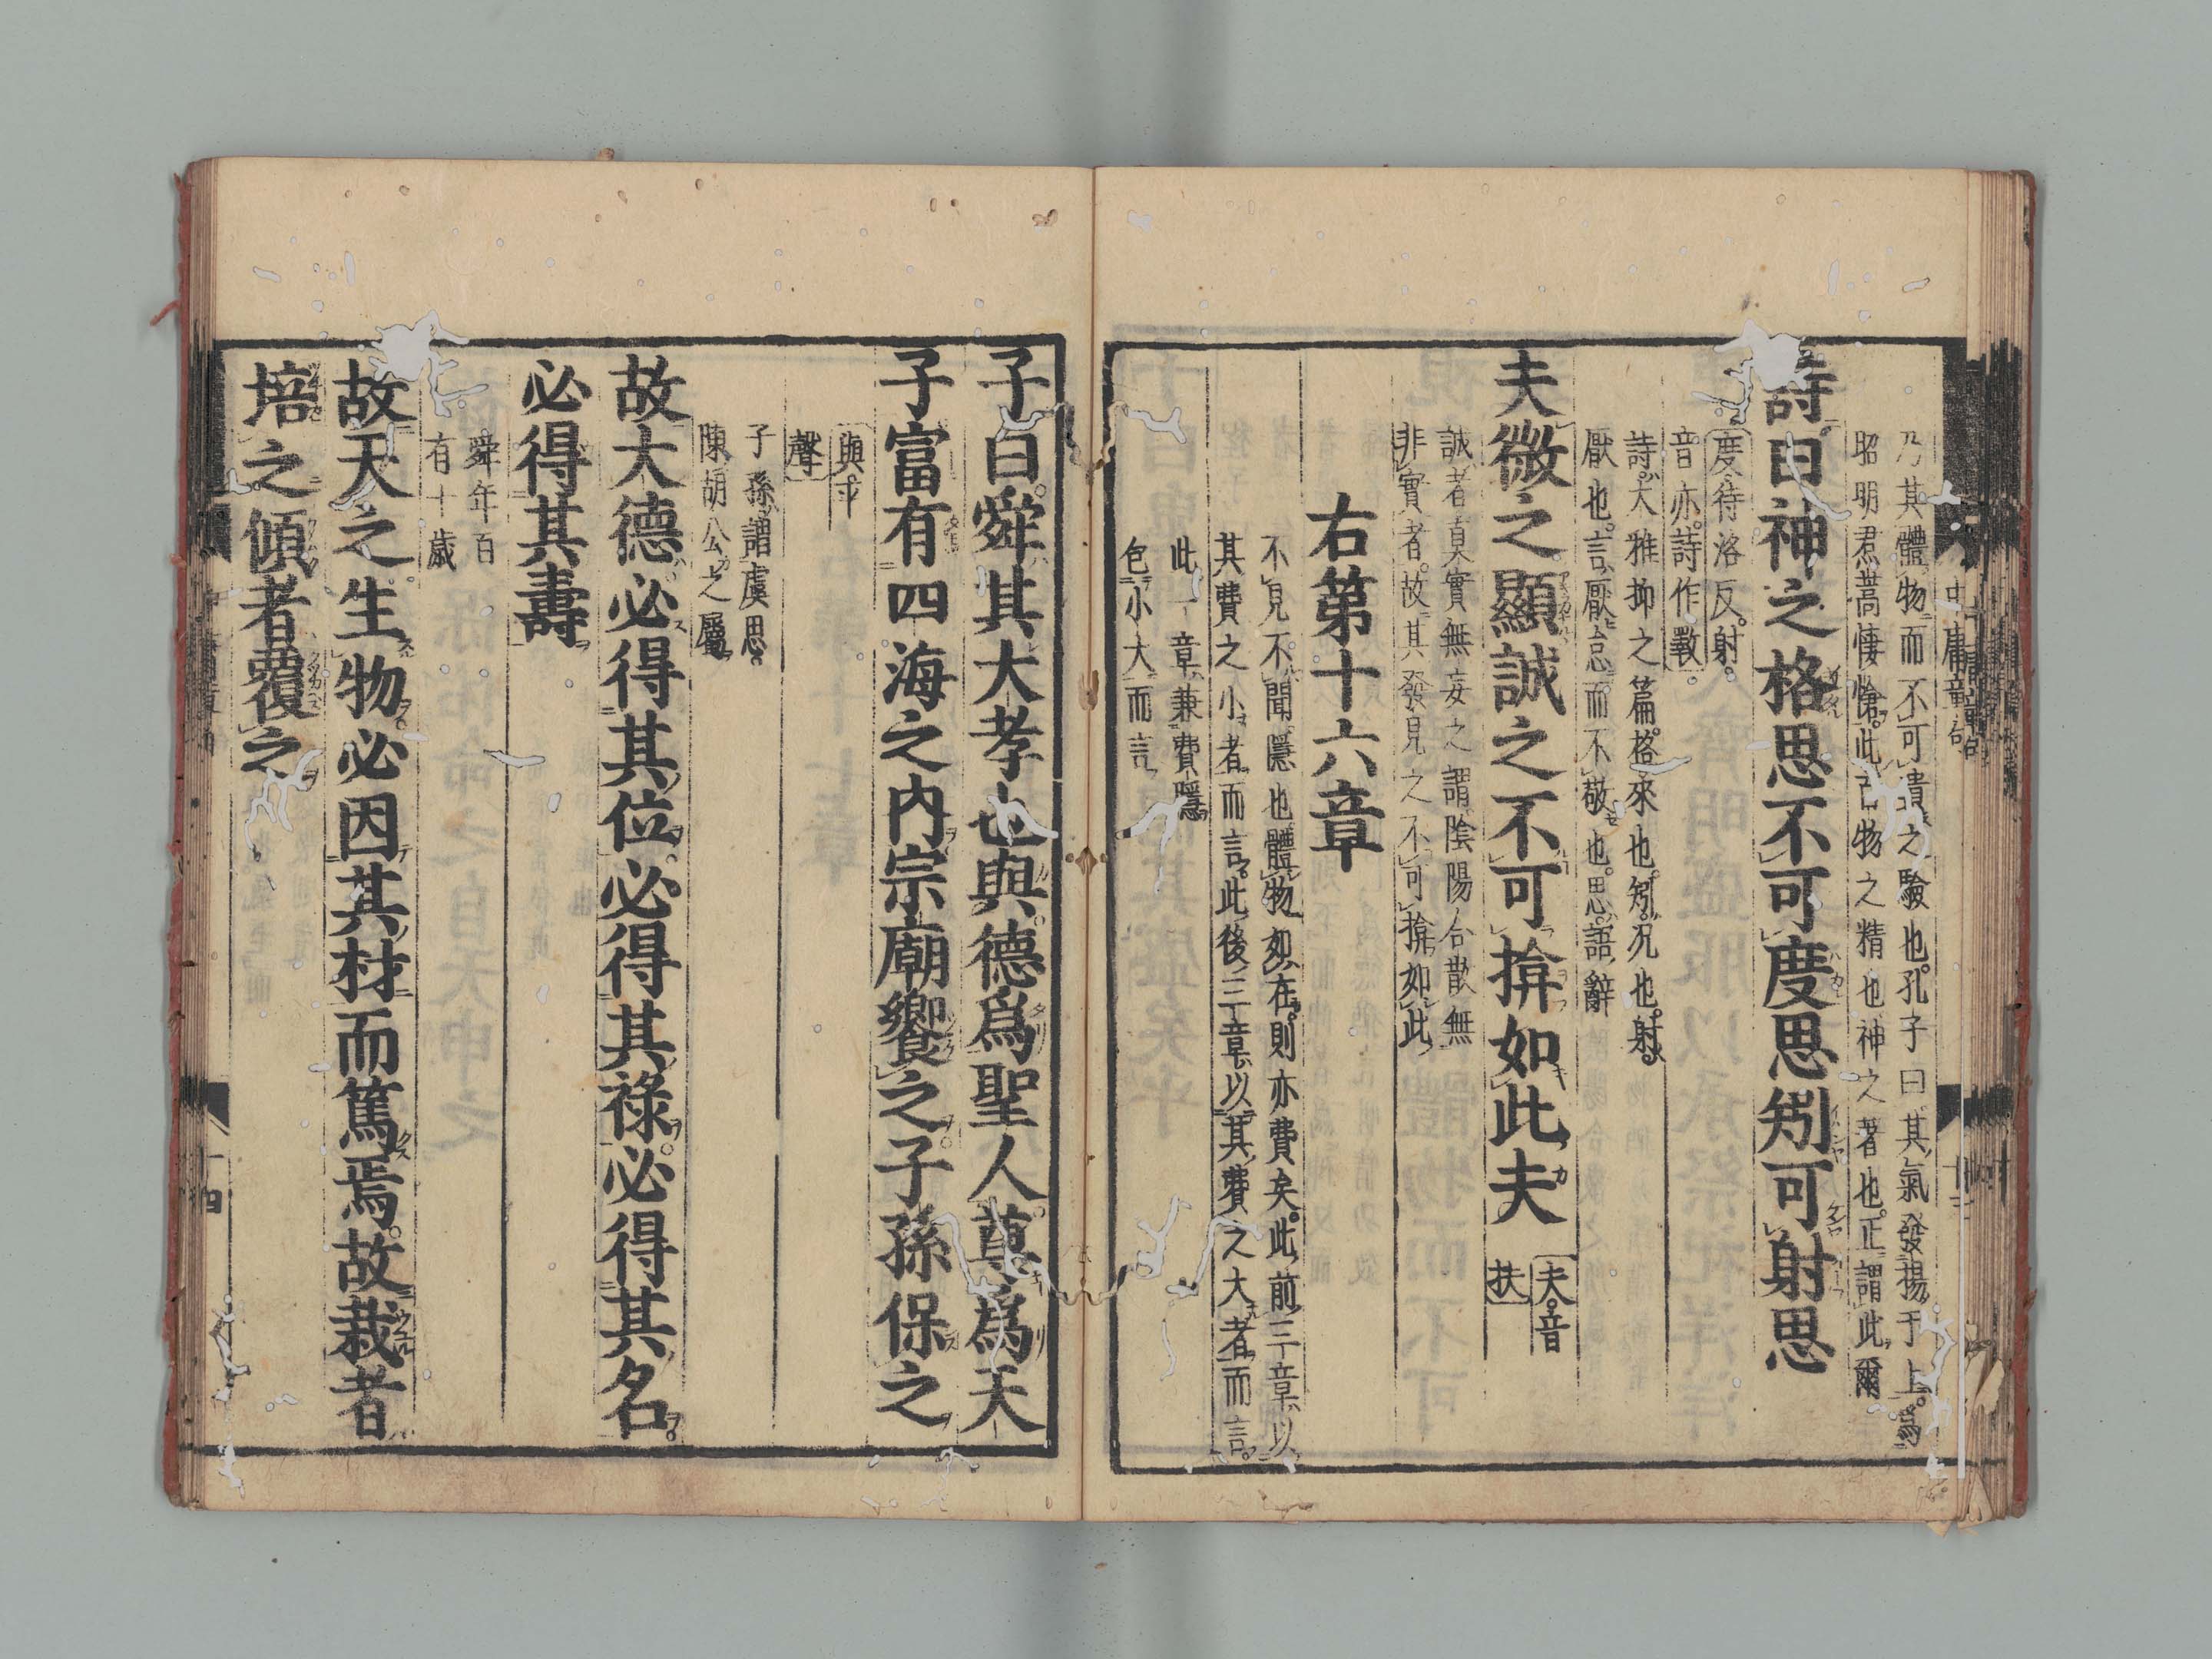 乃其體物而不可遺之驗也孔子曰其氣發揚于上爲
昭明焄蒿悽愴此百物之精也神之著也正謂此爾
詩曰神之格思不可度思矧可射思
度待洛反射
音亦詩作斁
詩大雅抑之篇格來也矧況也射
厭也言厭怠而不敬也思語辭
夫微之顯誠之不可揜如此夫
夫音
扶
誠者眞實無妄之謂陰陽合散無
非實者故其發見之不可揜如此
右第十六章
不見不聞隱也體物如在則亦費矣此前三章以
其費之小者而言此後三章以其費之大者而言
此一章兼費隱
包小大而言
子曰舜其大孝也與德爲聖人尊爲天
子富有四海之内宗廟饗之子孫保之
與平
聲
子孫謂虞思
陳胡公之屬
故大德必得其位必得其祿必得其名
必得其壽
舜年百
有十歲
故天之生物必因其材而篤焉故栽者
培之傾者覆之
中庸章句